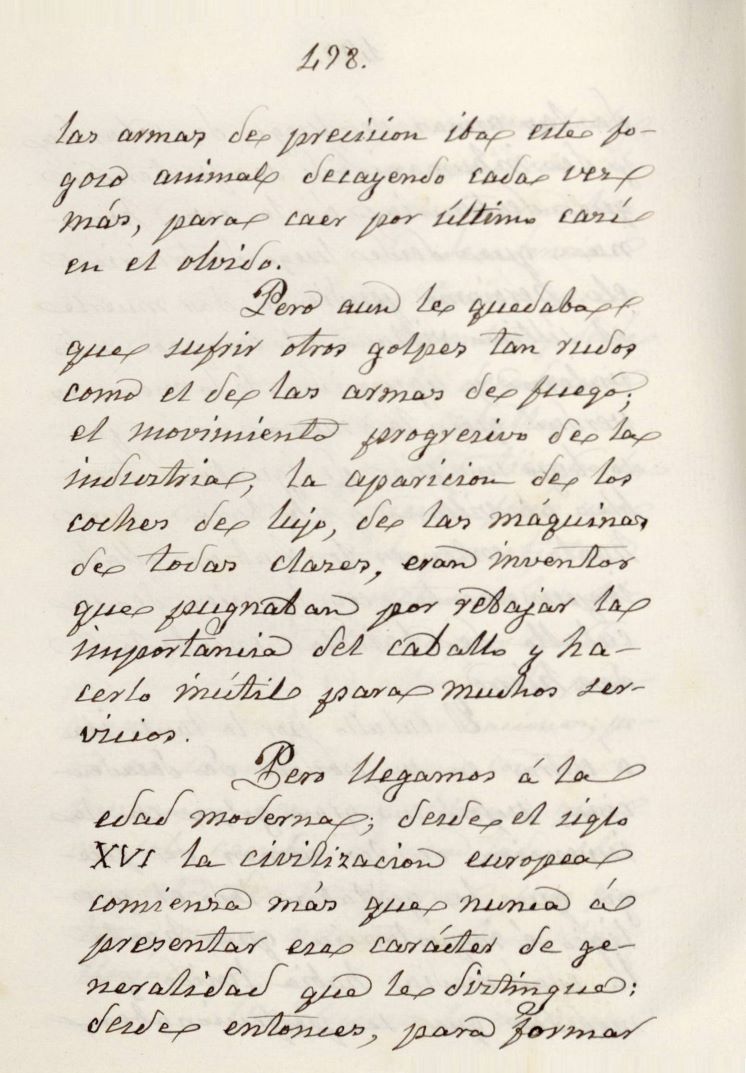 498.
las armas de precision iba este fo-
goso animal decayendo cada vez
más, para caer por último casí
en el olvido.
Pero aun le quedaba
que sufrir otros golpes tan rudos
como el de las armas de fuego;
el movimiento progresivo de la
industria, la aparicion de los
coches de lujo, de las máquinas
de todas clases, eran inventos
que pugnaban por rebajar la
importancia del caballo y ha-
cerlo inútil para muchos ser-
vicios.
Pero llegamos á la
edad moderna; desde el siglo
XVI la civilizacion europea
comienza más que nunca á
presentar ese carácter de ge-
neralidad que le distingue;
desde entonces, para formar